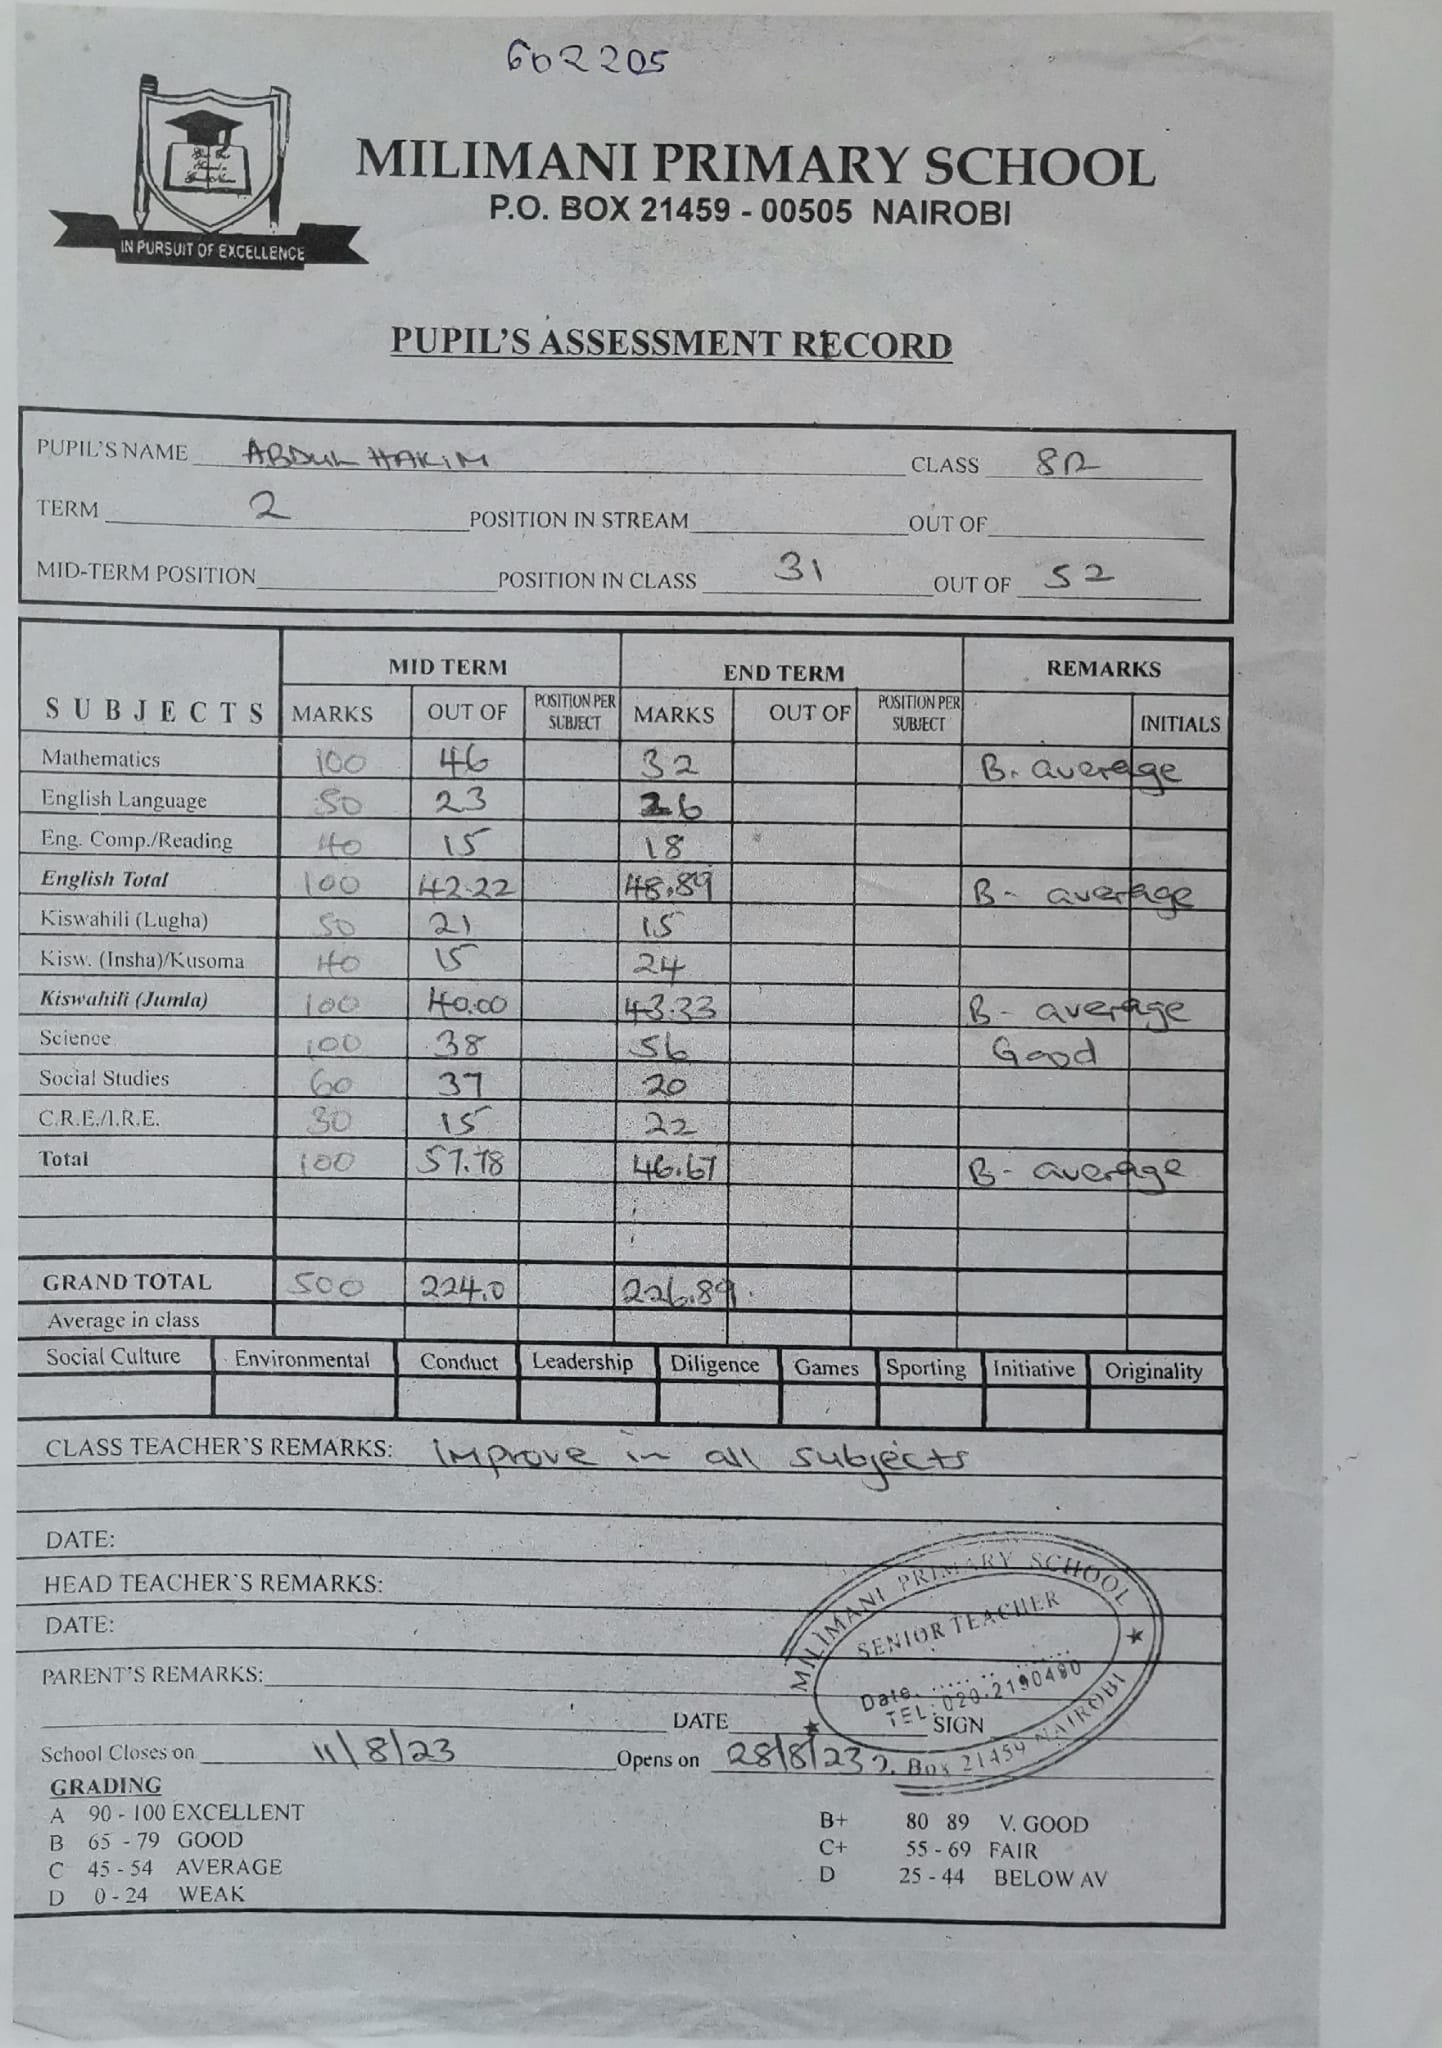 602205
IN PURSUIT OF EXCELLENCE
MILIMANI PRIMARY SCHOOL
P.O. BOX 21459 - 00505 NAIROBI
PUPIL'S ASSESSMENT RECORD
PUPIL'S NAME ABDUL HAKIM CLASS 8R
TERM 2 POSITION IN STREAM OUT OF
MID-TERM POSITION POSITION IN CLASS 31 OUT OF 52
SUBJECTS MID TERM END TERM REMARKS
MARKS OUT OF POSITION PER SUBJECT MARKS OUT OF POSITION PER SUBJECT INITIALS
Mathematics 100 46 32 B. average
English Language 50 23 26
Eng. Comp./Reading 40 15 18
English Total 100 42.22 48.89 B- average
Kiswahili (Lugha) 50 21 15
Kisw. (Insha)/Kusoma 40 15 24
Kiswahili (Jumla) 100 40.00 43.33 B- average
Science 100 38 56 Good
Social Studies 60 37 20
C.R.E./I.R.E. 30 15 22
Total 100 57.78 46.67 B- average
GRAND TOTAL 500 224.0 226.89
Average in class
Social Culture Environmental Conduct Leadership Diligence Games Sporting Initiative Originality
CLASS TEACHER'S REMARKS: improve in all subjects
DATE:
HEAD TEACHER'S REMARKS:
DATE:
PARENT'S REMARKS:
DATE SIGN
MILIMANI PRIMARY SCHOOL
SENIOR TEACHER
Date
TEL: 020-2190480
Box 21459 NAIROBI
School Closes on 11/8/23 Opens on 28/8/23
GRADING
A 90 - 100 EXCELLENT B+ 80 89 V. GOOD
B 65 - 79 GOOD C+ 55 - 69 FAIR
C 45 - 54 AVERAGE D 25 - 44 BELOW AV
D 0 - 24 WEAK